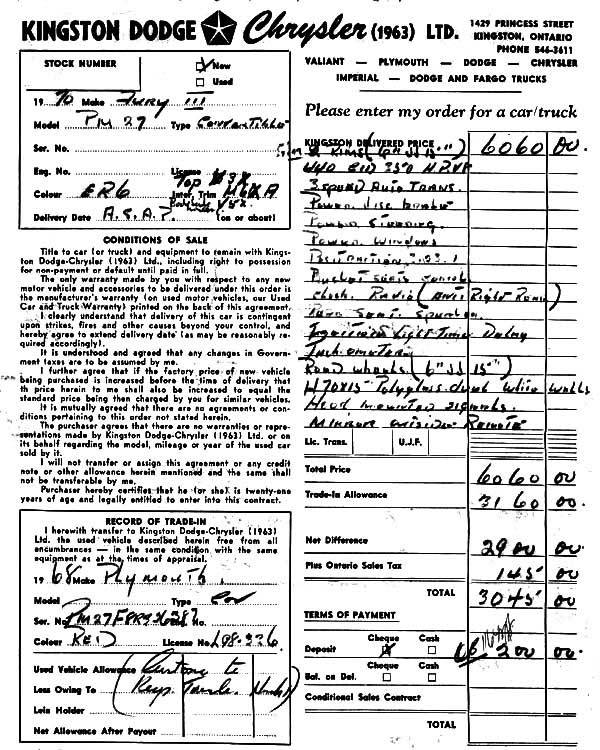 KINGSTON DODGE Chrysler (1963) LTD.
1429 PRINCESS STREET
KINGSTON, ONTARIO
PHONE 546-3611
VALIANT — PLYMOUTH — DODGE — CHRYSLER
IMPERIAL — DODGE AND FARGO TRUCKS
STOCK NUMBER
New
Used
1970 Make Fury III
Model PM 27 Type Convertible
Ser. No.
Eng. No. License
Colour ER6 Top V3X Inter. Trim H6XA
Delivery Date A.S.A.P. (on or about)
CONDITIONS OF SALE
Title to car (or truck) and equipment to remain with Kings-
ton Dodge-Chrysler (1963) Ltd., including right to possession
for non-payment or default until paid in full.
The only warranty made by you with respect to any new
motor vehicle and accessories to be delivered under this order is
the manufacturer's warranty (on used motor vehicles, our Used
Car and Truck Warranty) printed on the back of this agreement.
I clearly understand that delivery of this car is contingent
upon strikes, fires and other causes beyond your control, and
hereby agree to extend delivery date (as may be reasonably re-
quired accordingly).
It is understood and agreed that any changes in Govern-
ment taxes are to be assumed by me.
I further agree if the factory price of new vehicle
being purchased is increased before the time of delivery that
the price herein to me shall also be increased to equal the
standard price being then charged by you for similar vehicles.
It is mutually agreed that there are no agreements or con-
ditions pertaining to this order not stated herein.
The purchaser agrees that there are no warranties or repre-
sentations made by Kingston Dodge-Chrysler (1963) Ltd. or on
its behalf regarding the model, mileage or year of the used car
sold by it.
I will not transfer or assign this agreement or any credit
note or other allowance herein mentioned and the same shall
not be transferable by me.
Purchaser hereby certifies that he (or she) is twenty-one
years of age and legally entitled to enter into this contract.
RECORD OF TRADE-IN
I herewith transfer to Kingston Dodge-Chrysler (1963)
Ltd. the used vehicle described herein free from all
encumbrances — in the same condition with the same
equipment as at the times of appraisal.
1968 Make Plymouth
Model Type Cov
Ser. No. No.
Colour RED License No. L98-326
Used Vehicle Allowance Customer to
Less Owing To (Keep
Lein Holder
Net Allowance After Payout
Please enter my order for a car/truck
KINGSTON DELIVERED PRICE 6060 00
440 350 H.P. V8
3 speed Auto Trans.
Power Disc Brakes
Power Steering.
Power Windows
Bucket Seats Console
Radio (Ant Right Rear)
Rear Seat Speaker
Ignition Light Time Delay
Tachometer
Road wheels (6" JJ 15")
H70x15 Polyglas dual white walls
Hood mounted signals.
Mirror outside Remote
Lic. Trans. U.J.F.
Total Price 6060 00
Trade-In Allowance 3160 00
Net Difference 2900 00
Plus Ontario Sales Tax 145 00
TOTAL 3045 00
TERMS OF PAYMENT
Cheque Cash
Deposit 200 00
Cheque Cash
Bal. on Del.
Conditional Sales Contract
TOTAL